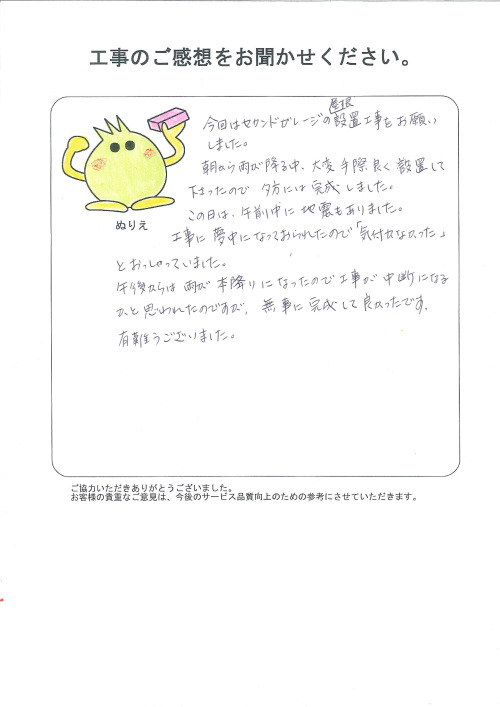 工事のご感想をお聞かせください。
屋根
今回はセカンドガレージの設置工事をお願い
しました。
朝から雨が降る中、大変手際良く設置して
下さったので夕方には完成しました。
この日は、午前中に地震もありました。
ぬりえ
工事に夢中になっておられたので「気付かなかった」
とおっしゃっていました。
午後からは雨が本降りになったので工事が中断になる
かと思われたのですが、無事に完成して良かったです。
有難うございました。
ご協力いただきありがとうございました。
お客様の貴重なご意見は、今後のサービス品質向上のための参考にさせていただきます。